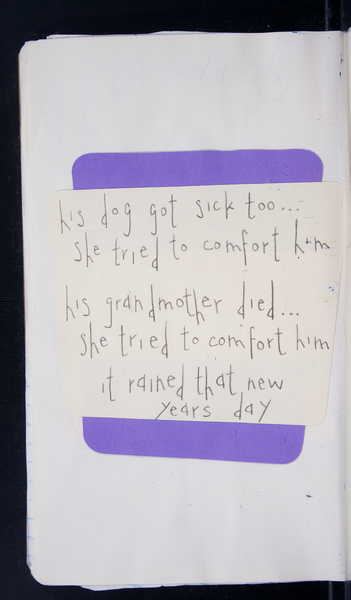 his dog got sick too...
she tried to comfort him
his grandmother died...
she tried to comfort him
it rained that new
years day